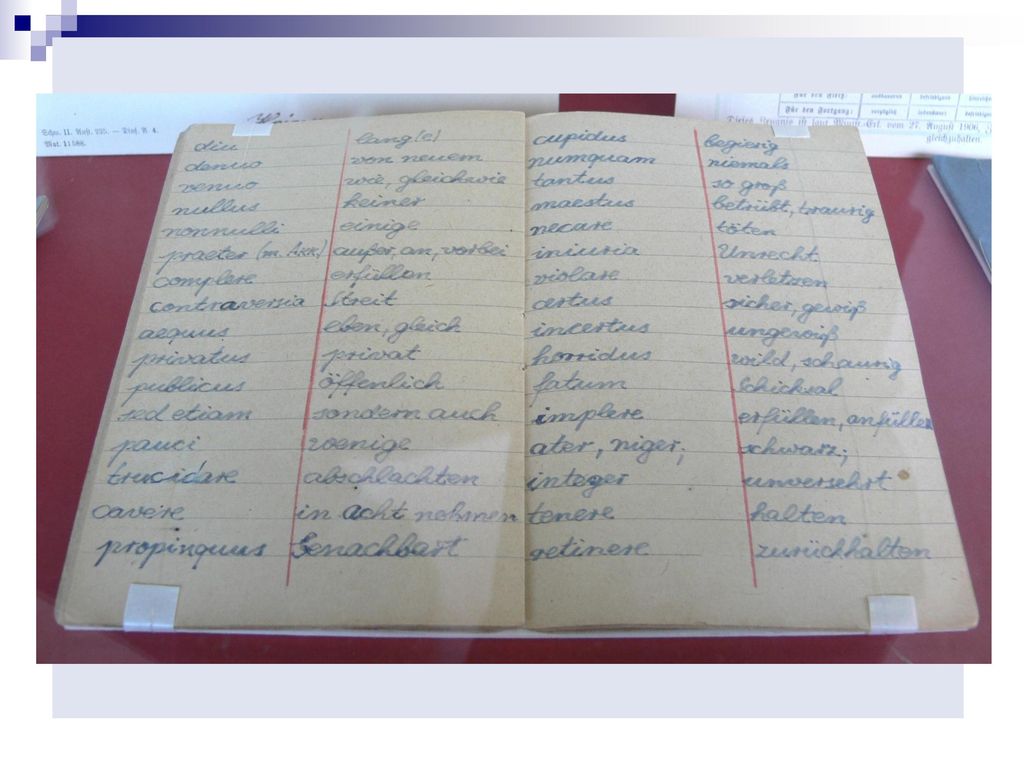 Schu. II. Nuſt. 235. — Dinſ. A 4.
Mat. 11588.
Für den Fleiß:
Für den Fortgang:
vom 27. Auguſt 1906,
gleichzuhalten.
diu lang(e)
denuo von neuem
venuo wie, gleichwie
nullus keiner
nonnulli einige
praeter (m. Akk) außer, an, vorbei
complere erfüllen
contraversia Streit
aequus eben, gleich
privatus privat
publicus öffenlich
sed etiam sondern auch
pauci wenige
trucidare abschlachten
cavere in acht nehmen
propinquus benachbart
cupidus begierig
numquam niemals
tantus so groß
maestus betrübt, traurig
necare töten
iniuria Unrecht
violare verletzen
certus sicher, gewiß
incertus ungewiß
horridus wild, schaurig
fatum Schicksal
implere erfüllen, anfüllen
ater, niger; schwarz;
integer unversehrt
tenere halten
retinere zurückhalten